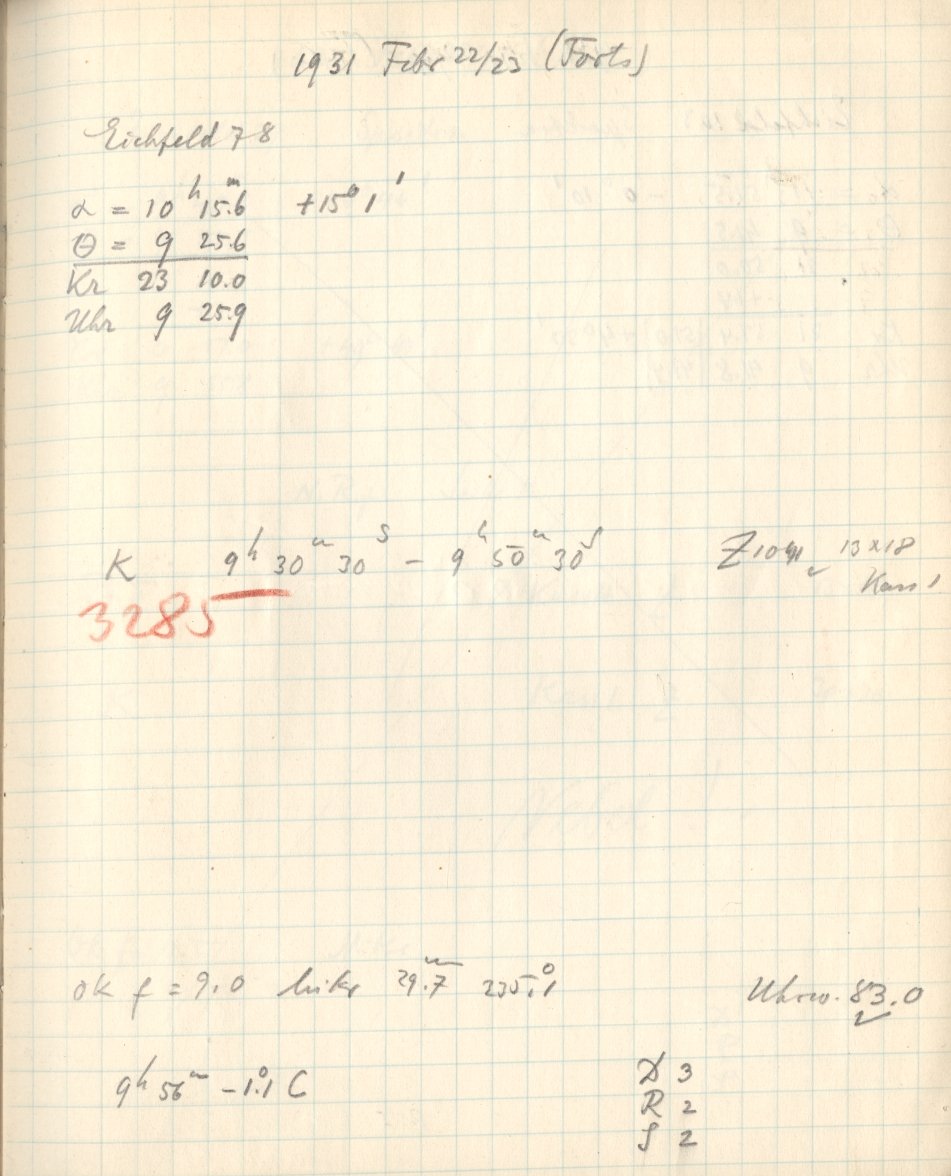 1931 Febr 22/23 (Forts)
Eichfeld 78
α = 10ʰ 15.6ᵐ +15° 1'
Θ = 9 25.6
Kr 23 10.0
Uhr 9 25.9
K 9ʰ 30ᵐ 30ˢ – 9ʰ 50ᵐ 30ˢ 13x18
Kass 1
3285
ok f = 9.0 links 29.7 235.1°
Uhrw. 83.0
9ʰ 56ᵐ –1.1° C
D 3
R 2
S 2